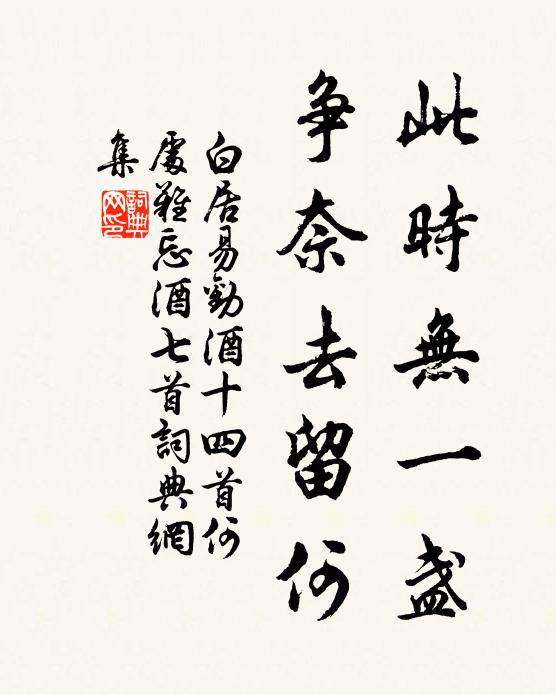 此時無一盞
爭奈去留何
白居易勸酒十四首何
處難忘酒七首詞典網
集
詞典
网印